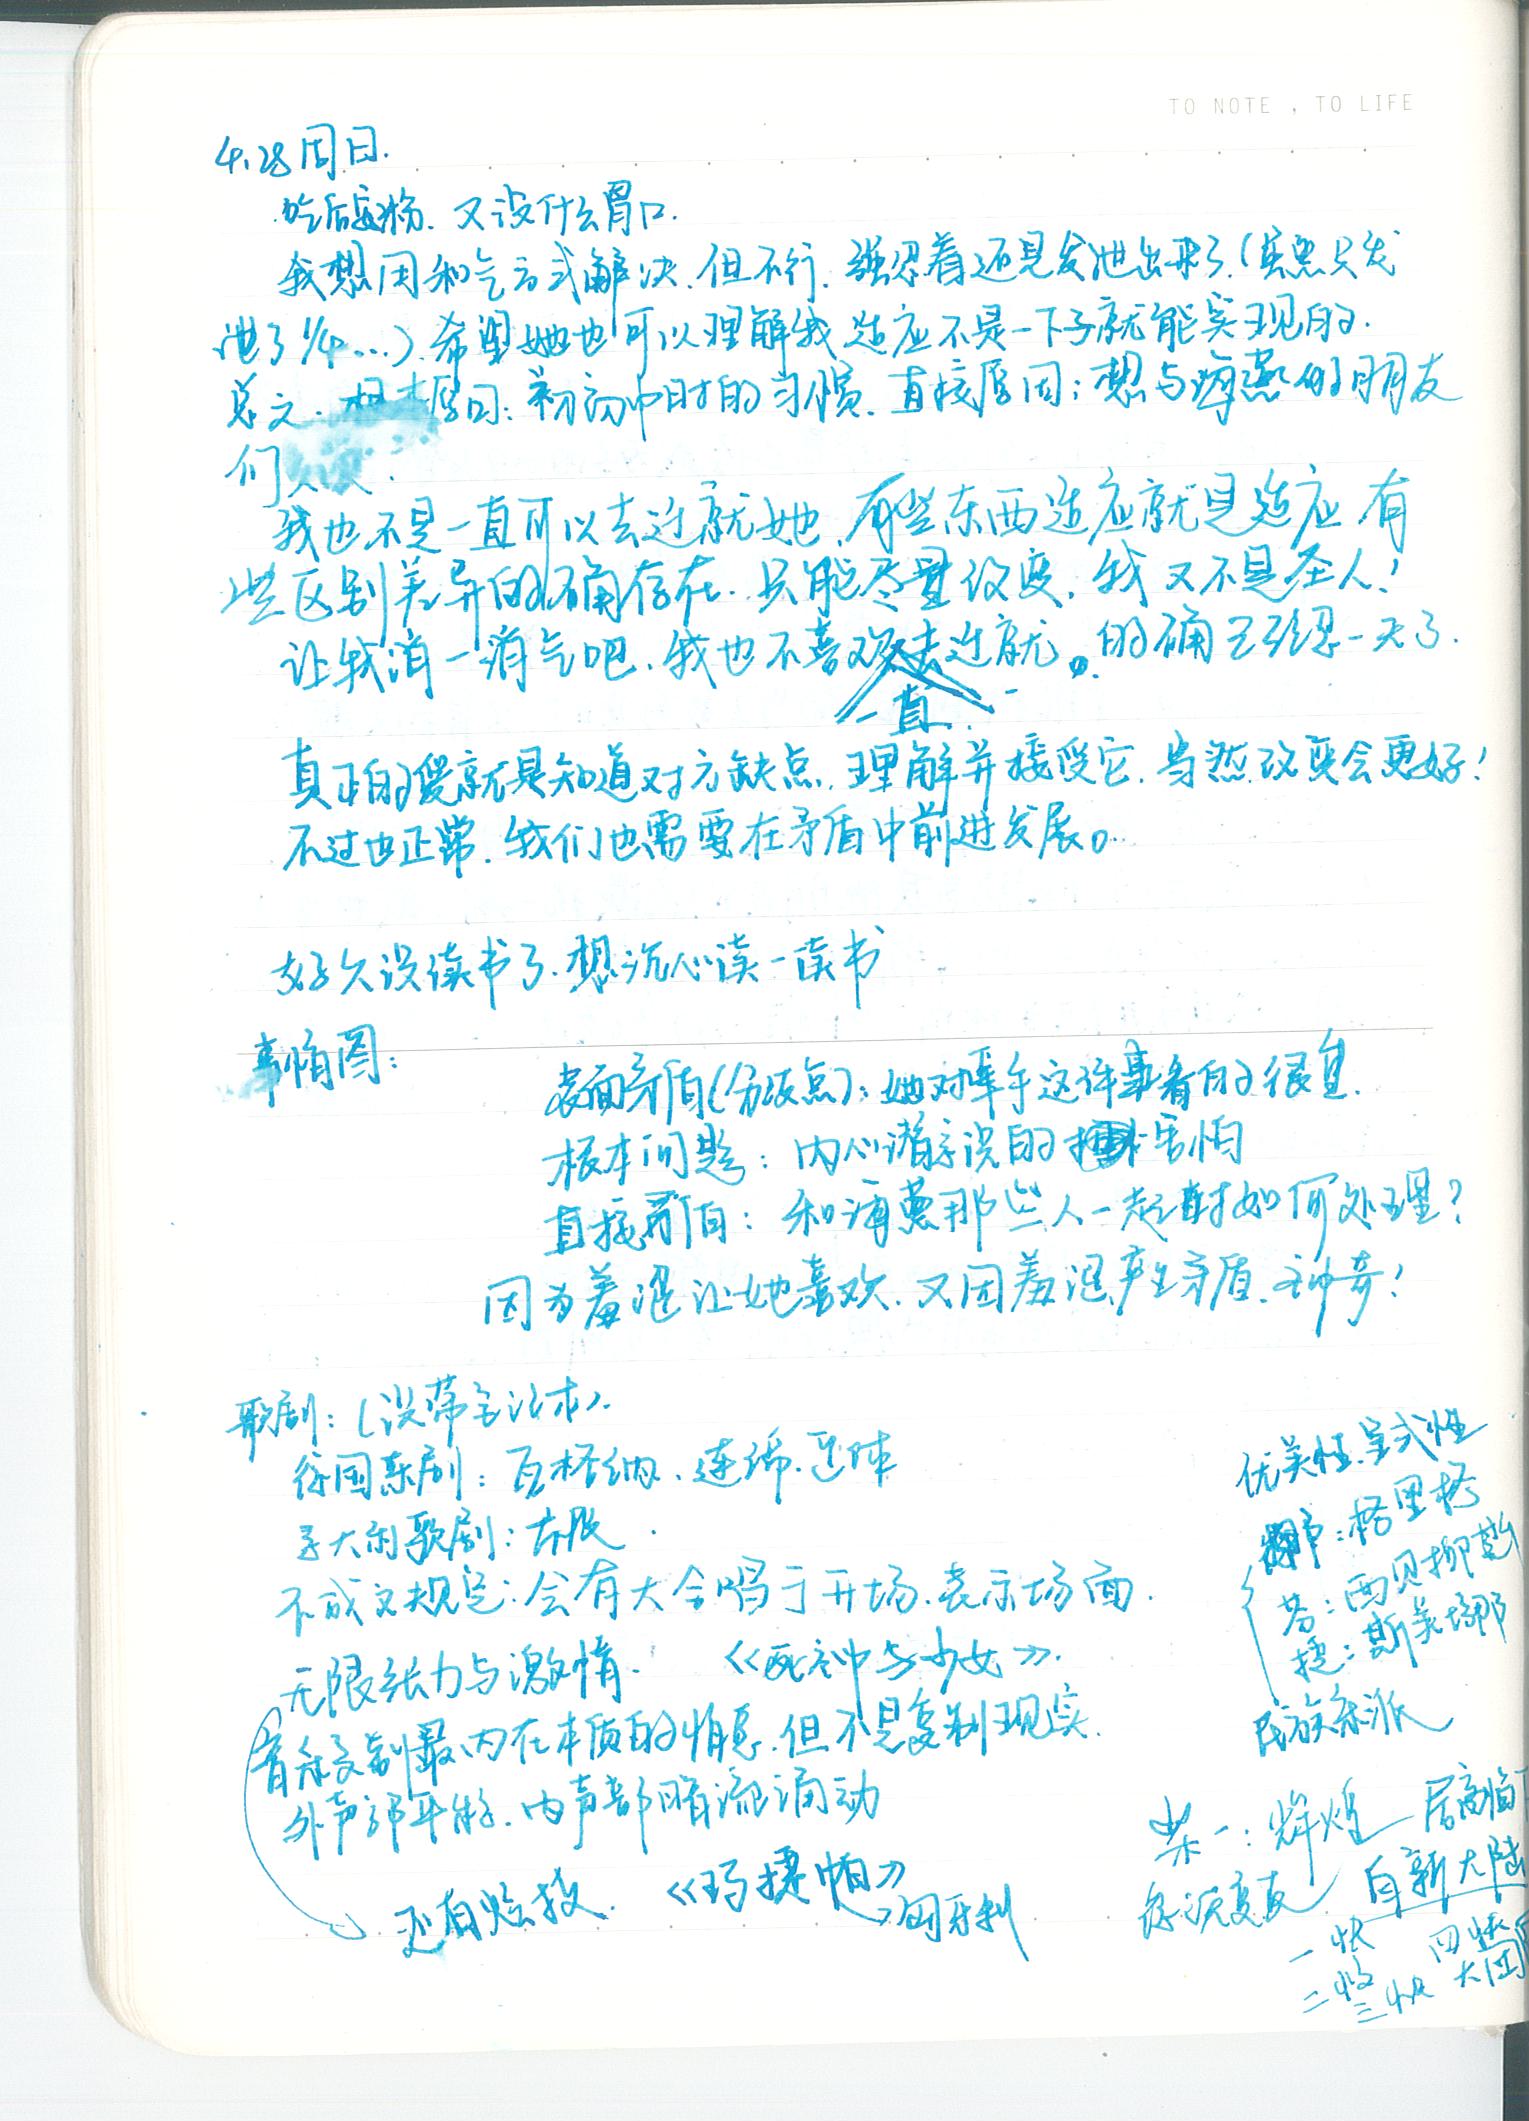 TO NOTE , TO LIFE
4.28 周日.
吃后 粉. 又没什么胃口.
我想用和气方式解决. 但不行. 强忍着还是发泄出来了.(实思只发
泄了1/4...). 希望她也可以理解我 适应不是一下子就能实现的.
总之. 根本原因: 初高中时的习惯. 直接原因: 想与海燕的朋友
们
我也不是一直可以去迁就她. 有些东西适应就是适应. 有
些区别差异的确存在. 只能尽量改变. 我又不是圣人!
让我消一消气吧. 我也不喜欢去迁就。的确已经忍一天了.
一直
真正的爱就是知道对方缺点. 理解并接受它. 当然改变会更好!
不过也正常. 我们也需要在矛盾中前进发展。
好久没读书了. 想沉心读一读书
事情图:
表面矛盾(分歧点): 她对牵手这件事看的很重.
根本问题: 内心潜意识的 害怕
直接矛盾: 和海燕那些人一起时如何处理?
因为羞涩让她喜欢. 又因羞涩产生矛盾. 神奇!
歌剧: (没带笔记本).
德国乐剧: 瓦格纳. 连绵.
意大利歌剧:
不成文规定: 会有大合唱于开场. 表示场面.
无限张力与激情. 《死神与少女》.
音乐复制最内在本质的情感. 但不是复制现实.
外声部平稳. 内声部暗流涌动
还有炫技. 《玛捷帕》
匈牙利
优美性. 呈式性
挪: 格里格
芬: 西贝柳斯
捷: 斯美塔那
民族乐派
柴一: 辉煌 居高临下
自新大陆
一快
二慢
三快
四快